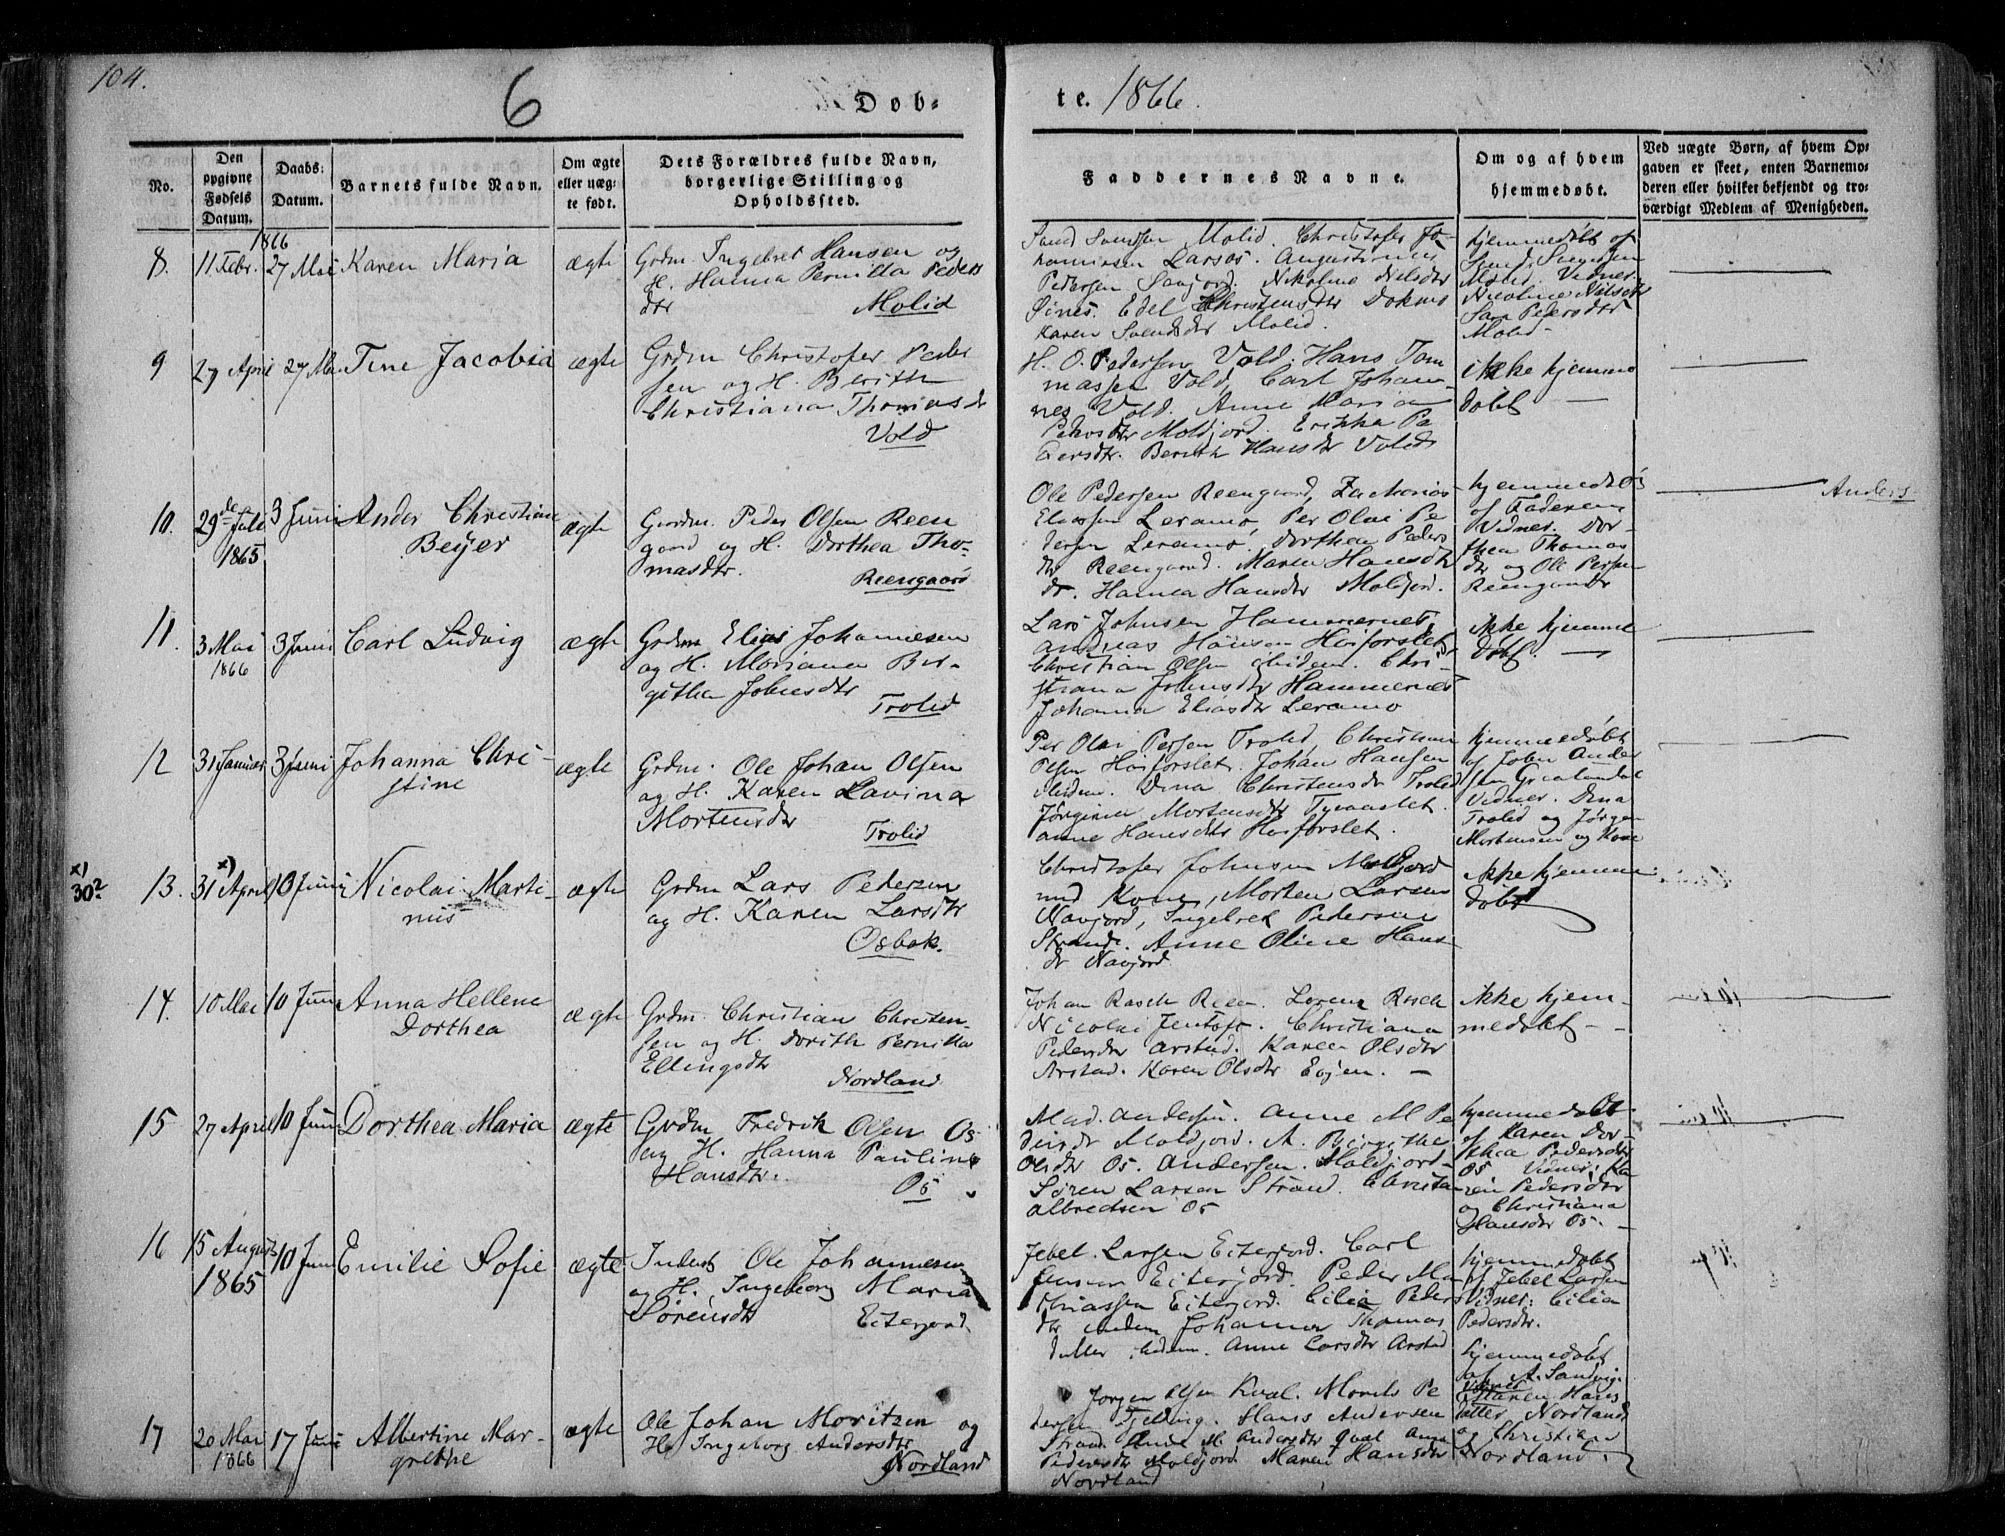 104.
6
Døb-
te. 1866.
No.
Den opgivne Fødsels Datum.
Daabs-Datum.
Barnets fulde Navn.
Om ægte eller uægte født.
Dets Forældres fulde Navn, borgerlige Stilling og Opholdssted.
Faddernes Navne.
Om og af hvem hjemmedøbt.
Ved uægte Børn, af hvem Opgaven er skeet, enten Barnemoderen eller hvilket bekjendt og troværdigt Medlem af Menigheden.
1866
8. 11 Febr. 27 Mai Karen Maria ægte
Grdm. Ingebret Hansen og
H. Hanna Pernilla Peders
dtr
Molid
Svend Svendsen Molid. Christofer Jo-
hannesen Larsos. Augustinus
Pedersen Savjord. Nikoline Nilsdtr
Øines. Edel Christensdtr Dokmo
Karen Svendsdtr Molid.
hjemmedøbt af
Svend Svendsen
Molid. Vidner.
Nicoline Nilsdtr
Sara Pedersdtr
Molid
9 27 April 27 Mai Tine Jacobia ægte
Grdm Christofer Peder
sen og H. Berith
Christiana Thomasdr
Vold
H. O. Pedersen Vold. Hans Tom
massen Vold, Carl Johan
nes Vold. Anne Maria
Pedersdtr Moldjord. Erikka Pe
dersdtr. Berith Hansdtr Vold
ikke hjemme
døbt
10. 29de Juli 1865 3 Juni Ander Christian
Beyer
ægte
Grdm. Peder Olsen Reen
gaard og H. Dorthea Tho-
masdtr.
Reengaard
Ole Pedersen Reengaard, Zacharias
Eliassen Leramo, Per Olai Pe
dersen Leramo. Dorthea Peders
dtr Reengaard. Maren Hansdtr
Hanna Hansdtr Moldjord.
hjemmedøbt
af Faderen
Vidner. Dor-
thea Thomas
dtr og Ole Persen
Reengaard
Anders
11. 3 Mai 1866 3 Juni Carl Ludvig ægte
Grdm Elias Johannesen
og H. Mariana Bir-
githa Johnsdtr
Trolid
Lars Johnsen Hammernes,
Andreas Hansen Høiforslet
Christian Olsen ibidem. Chri-
stiana Johnsdtr Hammernes
Johanna Eliasdtr Leramo
ikke hjemme
døbt.
12 31 Januar 3 Juni Johanna Chri-
stine
ægte
Grdm. Ole Johan Olsen
og H. Karen Lavina
Mortensdtr
Trolid
Per Olai Persen Trolid, Christian
Olsen Høiforslet. Johan Hansen
ibidem. Dina Christensdtr Trolid
Jørgine Mortensdtr
Anne Hansdtr Høiforslet.
hjemmedøbt
af John Ander
sen
Vidner. Dina
Trolid og Jørgen
Mortensen og Kone
x) 30?
13. 31 x) April 10 Juni Nicolai Marti-
nus
ægte
Grdm Lars Pedersen
og H. Karen Larsdtr
Osbak.
Christofer Johnsen Moldjord
med Kone, Morten Larsen
Navjord, Ingebret Pedersen
Strand. Anne Oline Hans
dr Navjord
ikke hjemme
døbt
14. 10 Mai 10 Juni Anna Hellene
Dorthea
ægte
Grdm. Christian Christen-
sen og H. Dorith Pernilla
Ellingsdtr
Nordland
Johan Rasch Reen. Lorenz Rasch
Nicolai Jentoft. Christiana
Pedersdtr Arstad. Karen Olsdtr
Arstad. Karen Olsdtr Evjen.
Ikke hjem-
medøbt
15 27 April 10 Juni Dorthea Maria ægte
Grdm Fredrik Olsen Os
og H. Hanna Pauline
Hansdtr.
Os
Mad. Andersen. Anne M Pe
dersdr Moldjord. A. Birgithe
Olsdtr Os. Andersen. Moldjord
Søren Larsen Strand. Christian
Albredtsen Os
hjemmedøbt
af Karen Dor-
thea Pedersdtr
Os Vidner: Ka
ren Pedersdtr
og Christiana
Hansdtr Os.
16 15 August 1865 10 Juni Emilie Sofie ægte
Inderst Ole Johannesen
og H. Ingeborg Maria
Sørensdtr
Eiterjord
Jebel Larsen Eiterjord. Carl
Jensen Eiterjord. Peder Ma
thiassen Eiterjord. Cilia Peders
dtr ibidem Johanna Thomas
datter ibidem. Anne Larsdtr Arstad
hjemmedøbt
af Jebel Larsen
Vidner: Cilia
Pedersdtr.
17 20 Mai 1866 17 Juni Albertine Mar-
grethe
ægte
Ole Johan Moritzen og
H. Ingeborg Andersdtr
Nordland
Jørgen Olsen Kval. Morits Pe
dersen Tjelvig. Hans Andersen
Strand. Anne M. Andersdtr Qval Anne
Pedersdtr Moldjord Maren Hansdtr
Nordland
hjemmedøbt
af A. Sandvig.
Vidner
Maren Hans
datter Nordland
og Christian
Nordland.